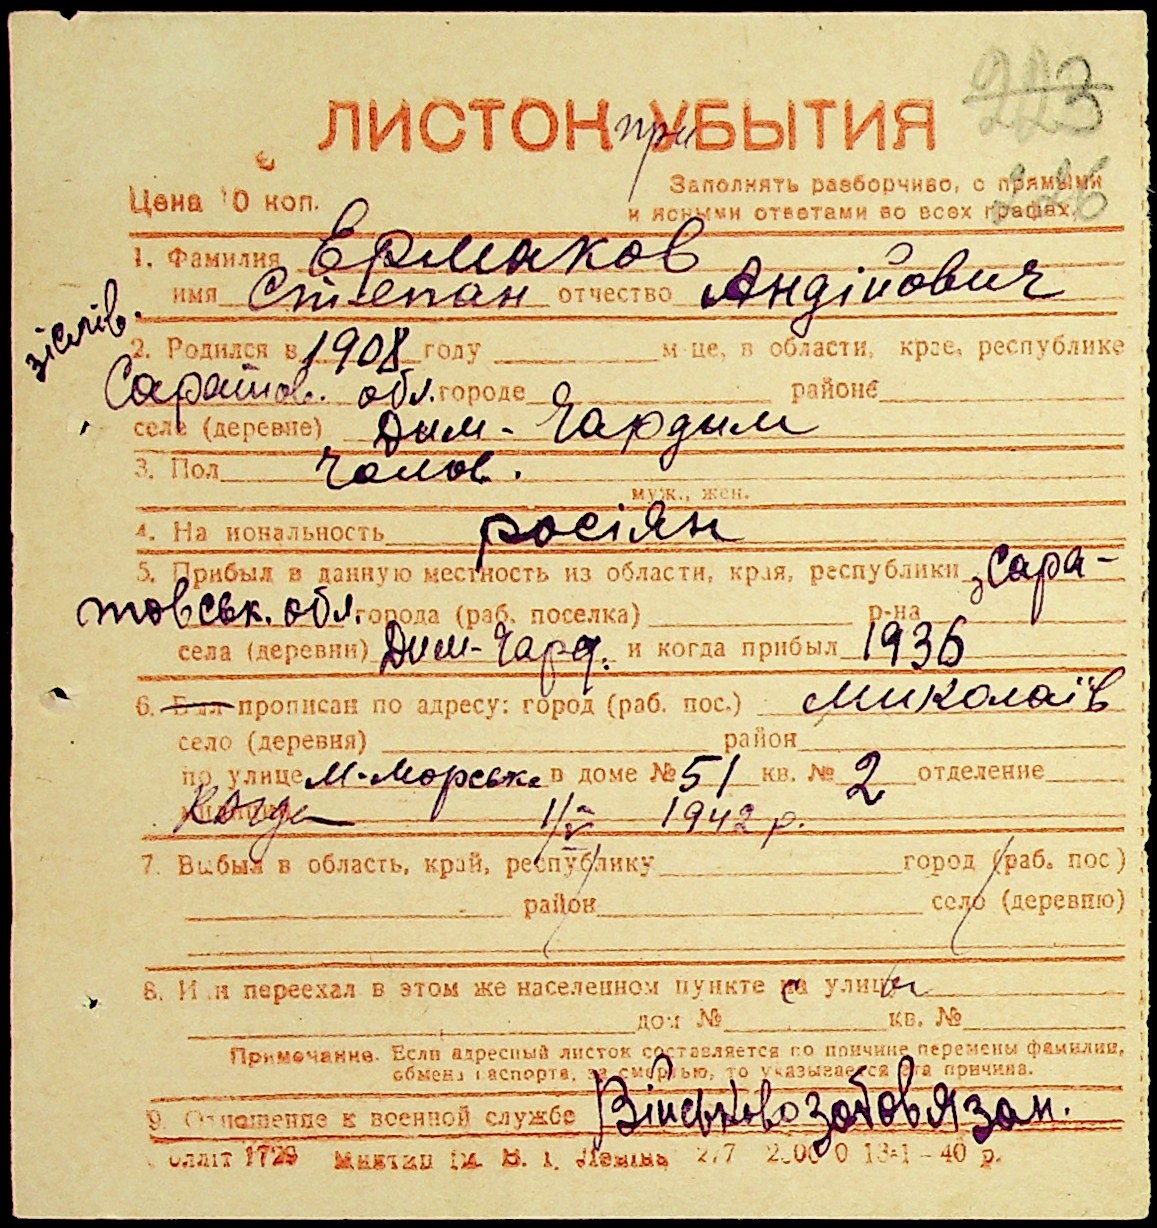 223
226
ЛИСТОК при УБЫТИЯ
Цена 10 коп.
Заполнять разборчиво, с прямыми
и ясными ответами во всех графах.
1. Фамилия Ермаков
имя Степан отчество Андійович
2. Родился в 1908 году м-це, в области, крае, республике
Саратов. обл. городе районе
селе (деревне) Дим-Чардим
3. Пол Чолов.
муж., жен.
4. Национальность росіян
5. Прибыл в данную местность из области, края, республики з Сара-
товськ. обл. города (раб. поселка) р-на
села (деревни) Дим-Чард. и когда прибыл 1936
6. Был прописан по адресу: город (раб. пос.) Миколаїв
село (деревня) район
по улице М-Морська в доме № 51 кв. № 2 отделение
милиции 1/V 1942 р.
7. Выбыл в область, край, республику город (раб. пос)
район село (деревню)
8. Или переехал в этом же населенном пункте с улицы
дом № кв. №
Примечание. Если адресный листок составляется по причине перемены фамилии,
обмена паспорта, за смертью, то указывается эта причина.
9. Отношение к военной службе Військовозобовязан.
1729 им. В. І. Леніна 40 р.